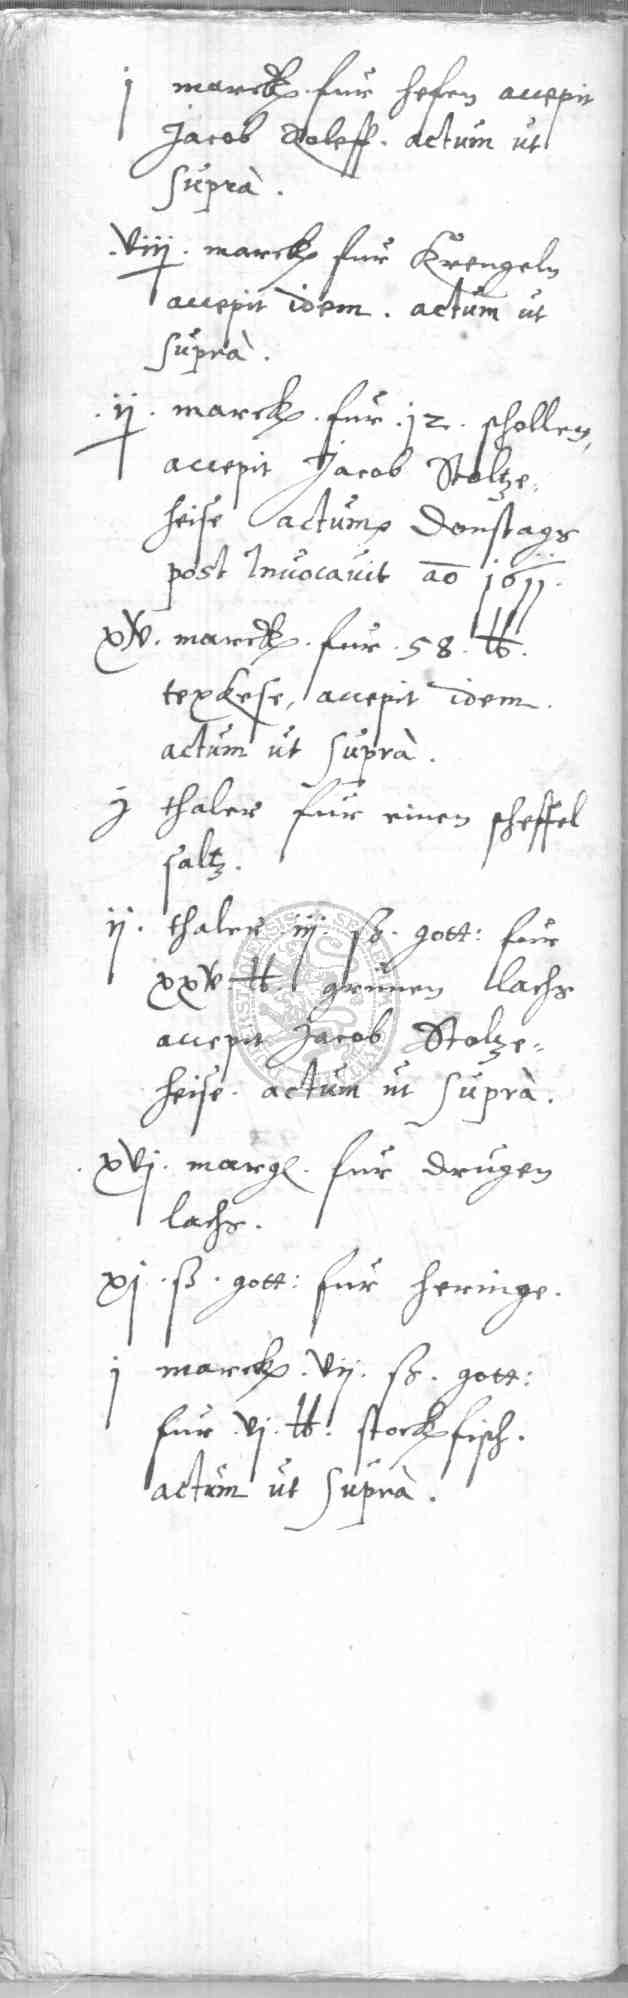 j marck fur hefen accepit
Jacob Roleff. actum ut
suprà.
.viij. marck fur Krengeln
accepit idem. actum ut
suprà.
.ij. marck. fur .12. schollen,
accepit Jacob Stoltze-
heise actum Donstags
post Invocavit ao 1611.
xv. marck. fur .58. ℔.
texkese, accepit idem.
actum ut suprà.
j thaler fur einen scheffel
saltz.
ij. thaler .iij. ß. gott: fur
xxv ℔. grunen lachs
accepit Jacob Stoltze-
heise. actum ut suprà.
.xvj. marck. fur drugen
lachs.
xj. ß. gott: fur heringe.
j marck. vij. ß. gott:
fur .vj. ℔. stockfisch.
actum ut suprà.